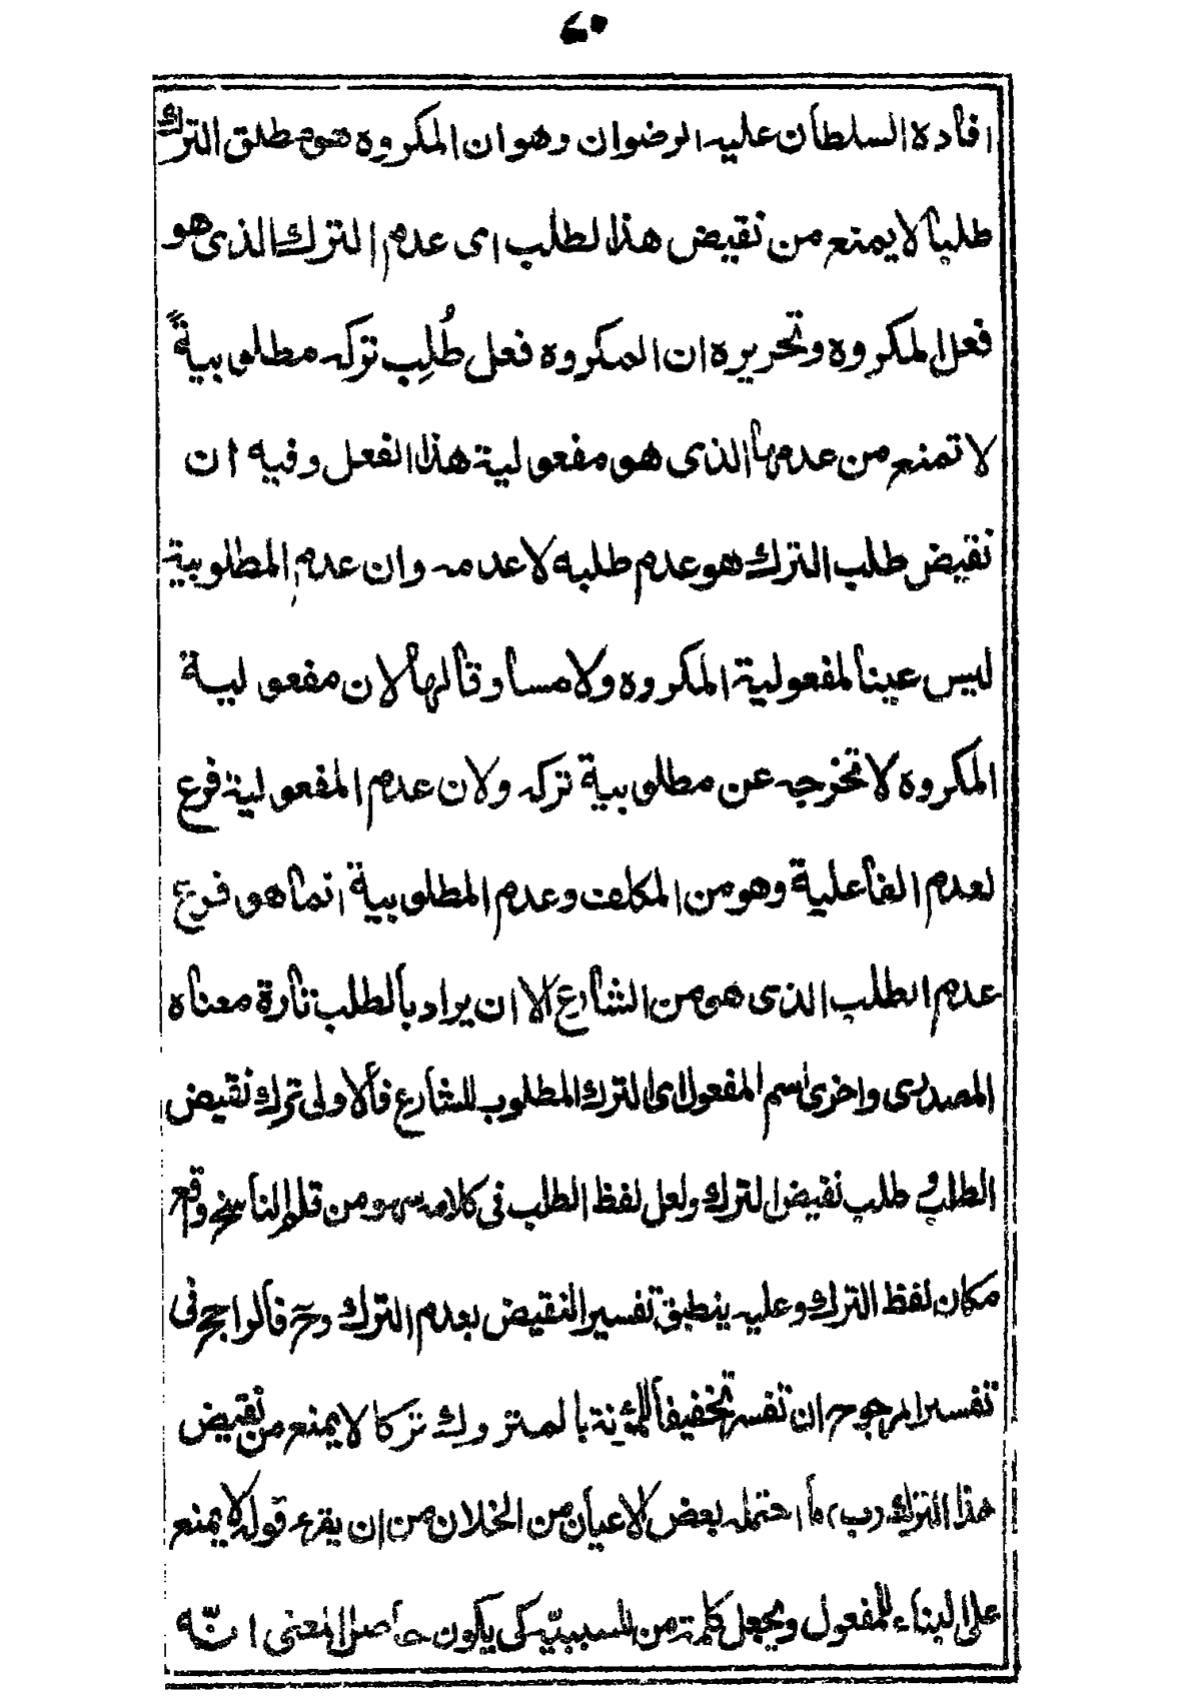 ٤٥
افاده السلطان عليه الرضوان وهو ان المكروه هو مطلق الترك
طلبا لا يمنع من نقيض هذا الطلب اى عدم الترك الذى هو
فعل المكروه وتحريره ان المكروه فعل طُلِب تركه مطلوبيةً
لا تمنع من عدمها الذى هو مفعولية هذا الفعل وفيه ان
نقيض طلب الترك هو عدم طلبه لا عدمه وان عدم المطلوبية
ليس عينا لمفعولية المكروه ولا مساوقا لها لان مفعولية
المكروه لا تخرجه عن مطلوبية تركه ولان عدم المفعولية فرع
لعدم الفاعلية وهو من المكلف وعدم المطلوبية انما هو فرع
عدم الطلب الذى هو من الشارع الا ان يراد بالطلب تارة معناه
المصدرى واخرى اسم المفعول اى الترك المطلوب للشارع فالاولى ترك نقيض
الطلب و طلب نقيض الترك ولعل لفظ الطلب فى كلامه سهو من قلم الناسخ وقع
مكان لفظ الترك وعليه ينطبق تفسير النقيض بعدم الترك وح فالراجح فى
تفسير المرجوح ان تفسر تخفيفا للمؤنة بالمتروك تركا لا يمنع من نقيض
هذا الترك (ب) ما احتمله بعض الاعيان من الخلان من ان يقرء قوله لا يمنع
على البناء للمفعول ويجعل كلمة من للسببيّه كى يكون حاصل المعنى انّه